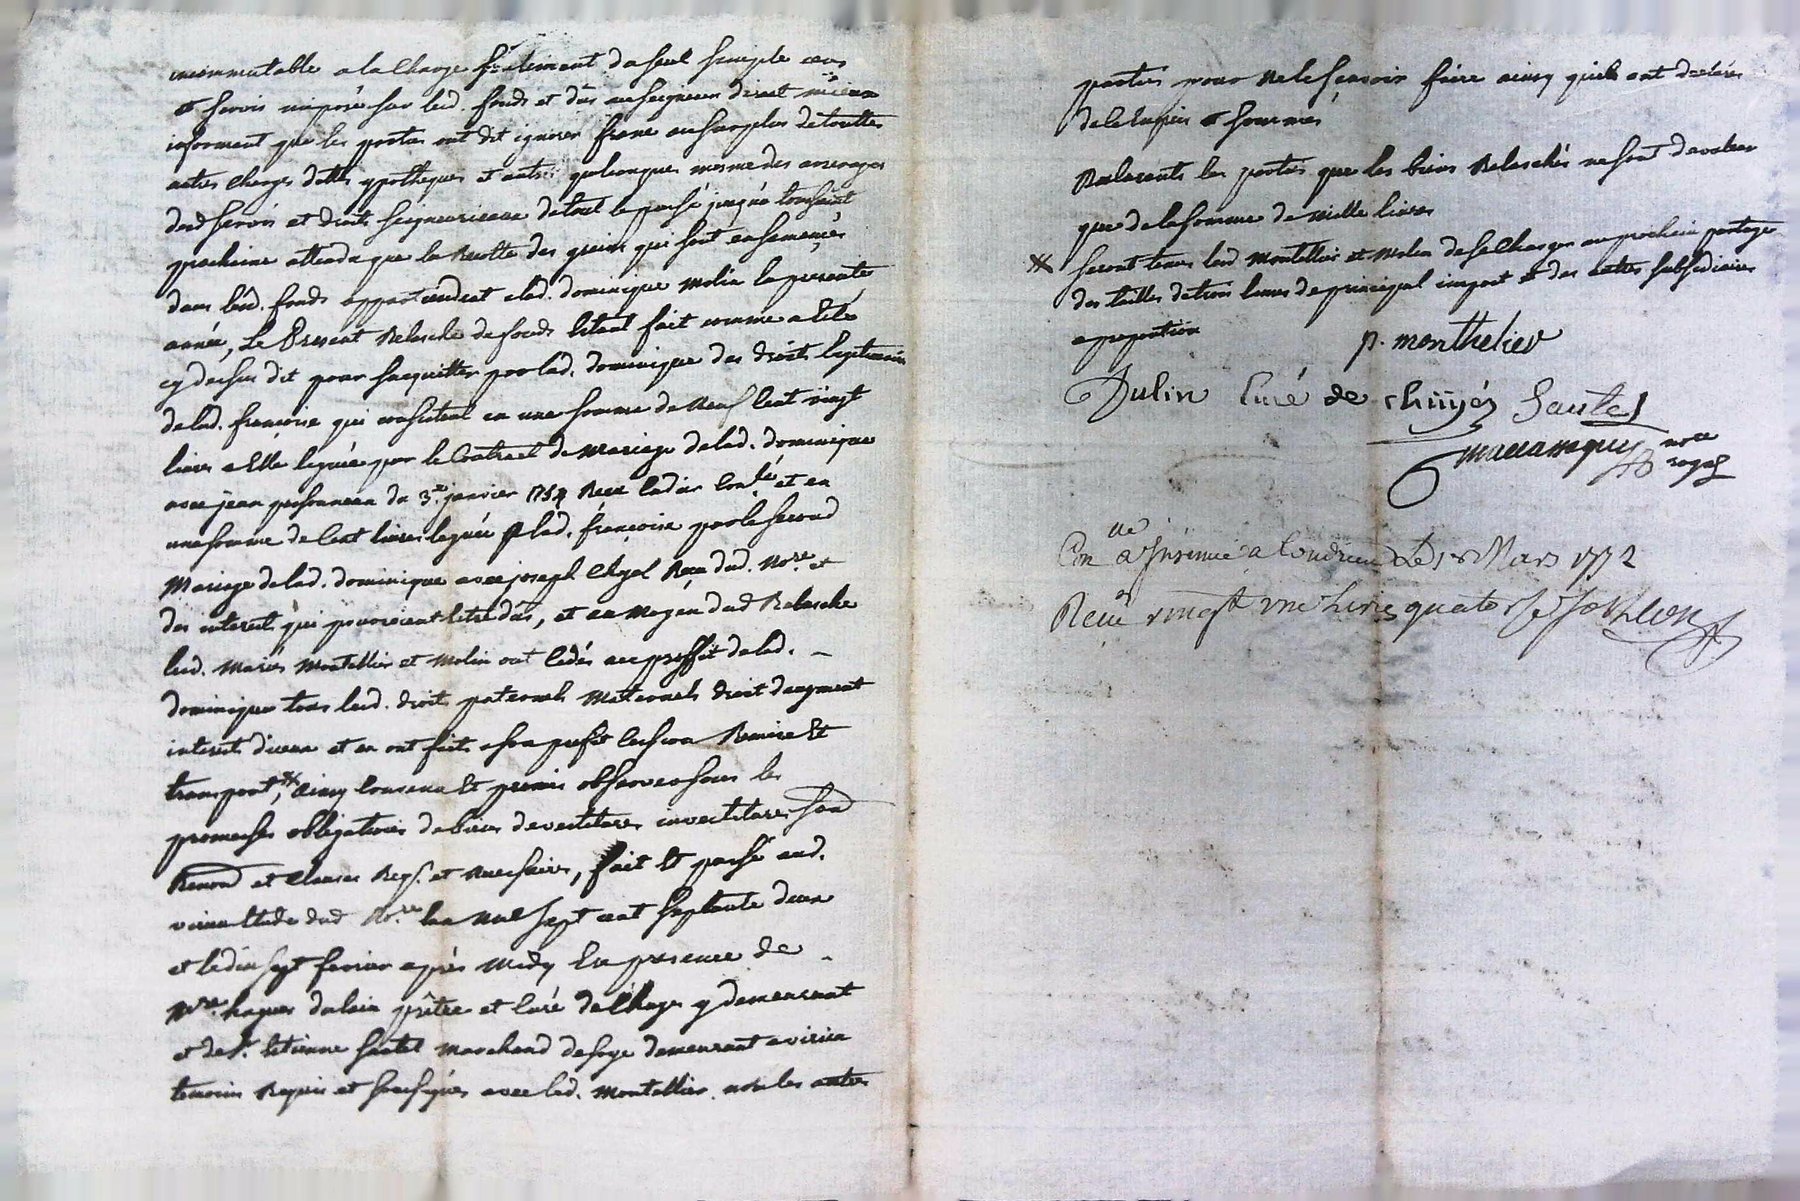 incommutable a la Charge seulement du seul simple cens
et servis imposé sur lesd. fonds et dûs au seigneur direct
informent que les parties ont dit ignorer franc au surplus de touttes
autres Charges dettes ypotheques et autres quelconques mesme des arrerages
desd servis et droits seigneuriaux de tout le passé jusqu'a toussaint
prochaine attendu que la Recolte des grains qui sont ensemencés
dans lesd. fonds appartiendront alad. dominique Molin la presente
année, Le Present Relasche de fonds Estant fait comme a Eté
cy dessus dit pour s'acquitter par lad. dominique des droits legitimaires
de lad. francoise qui consistent en une somme de Neuf Cent vingt
livres a Elle leguée par le Contract de Mariage de lad. dominique
avec jean du 3e janvier 1754 Receu Controllé et en
une somme de Cent livres leguée a lad. francoise par le second
Mariage de lad. dominique avec joseph Receu dud. Nore. et
des interests qui pourroient Estre dûs, et au Moyen dud Relasche
lesd. Mariés Montellier et Molin ont Cedés au proffit de lad. _
dominique tous lesd. droits paternels Maternels droit d'augment
interets d'iceux et en ont faits a son profit Cession Remise Et
transport, * Ainsy Convenu Et promis observer sous les
promesses obligations de biens devestitures investitures
Renond et Clauses Reqs. et Necessaires, fait Et passé aud.
virieu Etude dud Nore. l'an Mil sept cent septante deux
et le dix sept fevrier après Midy En presence de _
Mre. hugues dulin prêtre et Curé de y demeurant
et de Sr. Etienne sautel Marchand de soye demeurant a virieu
temoins Requis et soussignés avec led. Montellier non les autres
parties pour ne le sçavoir faire ainsy quils ont declaré
de ce Enquis et sommés
Declarants les parties que les biens Relaschés ne sont de valeur
que de la somme de Mille livres
* seront tenus lesd Montellier et Molin de se Charger au prochein partage
des tailles de trois livres de principal impost et des autres subsidiaires
a proportion p. monthelier
Dulin Curé de chuyés Sautel
nore
royal
Con a Condrieu Le Mars 1772
Receu vingt une livre quatorse s